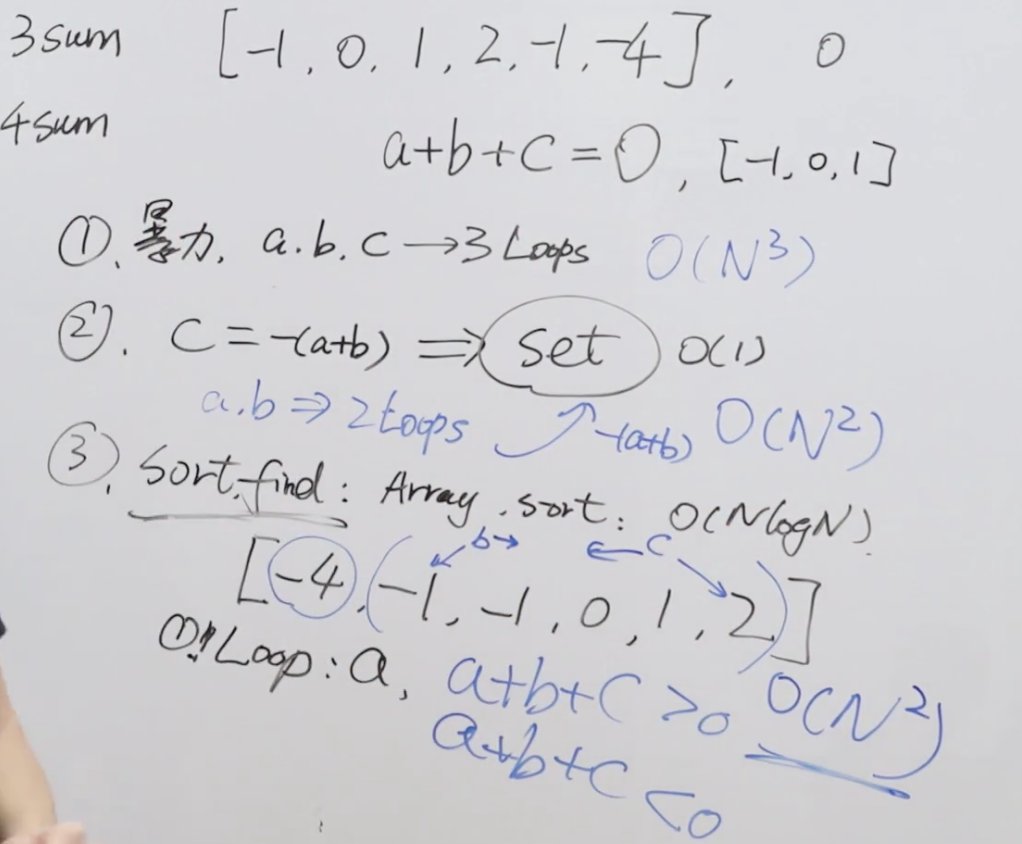 3sum [-1, 0, 1, 2, -1, -4], 0
4sum
a+b+c=0, [-1, 0, 1]
①. 暴力, a.b.c→3 Loops O(N³)
②. C=-(a+b) ⇒ Set O(1)
a.b⇒2Loops -(a+b) O(N²)
③. Sort.find: Array.sort: O(NlogN).
b→ ←c
[-4, (-1, -1, 0, 1, 2)]
①. Loop: a, a+b+c>0 O(N²)
a+b+c<0